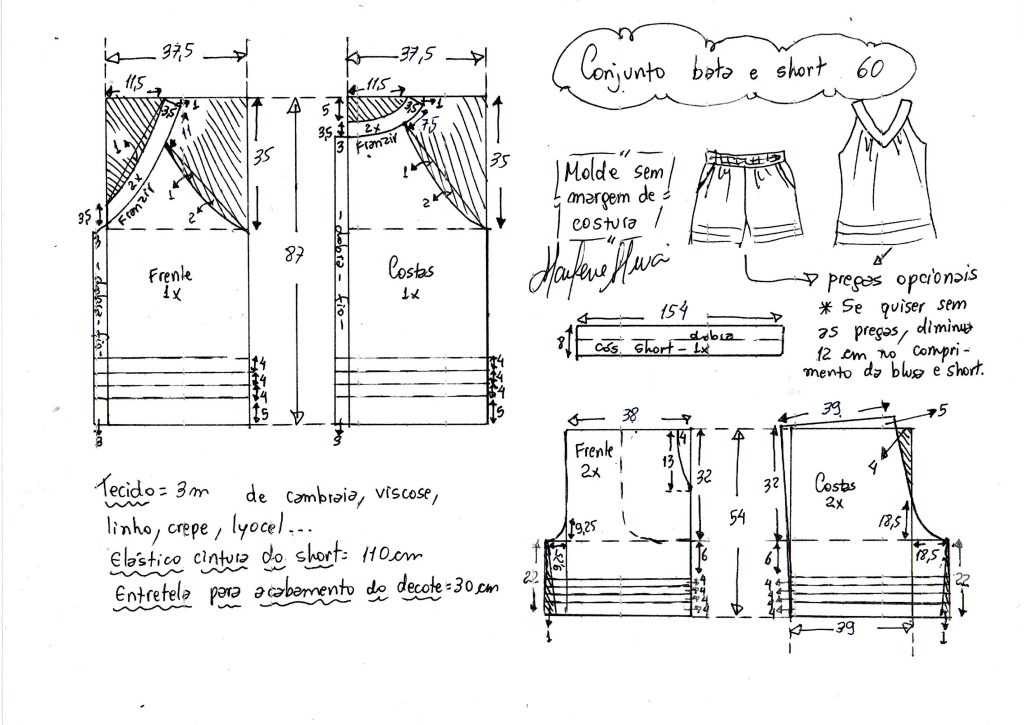 Conjunto bata e short 60
37,5
11,5
3,5
1
11
1
2x
Franzir
35
1
2
3,5
3
dobra - fio
Frente
1x
4
4
4
5
3
87
37,5
11,5
5
3,5
1
7,5
2x
Franzir
3,5
3
35
1
2
dobra - fio
Costas
1x
4
4
4
5
3
Molde sem
margem de
costura
pregas opcionais
* Se quiser sem
as pregas, diminua
12 cm no compri-
mento da blusa e short.
154
8
dobra
cós short - 1x
Tecido = 3m de cambraia, viscose,
linho, crepe, lyocel...
Elástico cintura do short = 110 cm
Entretela para acabamento do decote = 30 cm
38
Frente
2x
4
13
32
9,25
9,25
6
4
4
4
4
22
1
54
39
5
4
Costas
2x
32
18,5
18,5
6
4
4
4
4
22
1
39